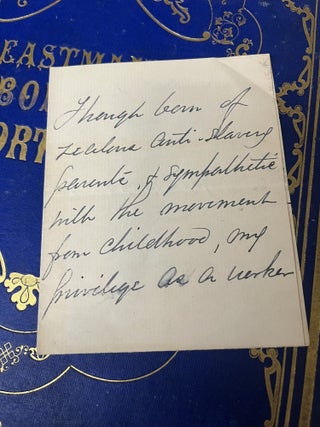 EASTMAN
BO
ORT
Though born of
zealous anti-slavery
parents, & sympathetic
with the movement
from childhood, my
privilege as a worker